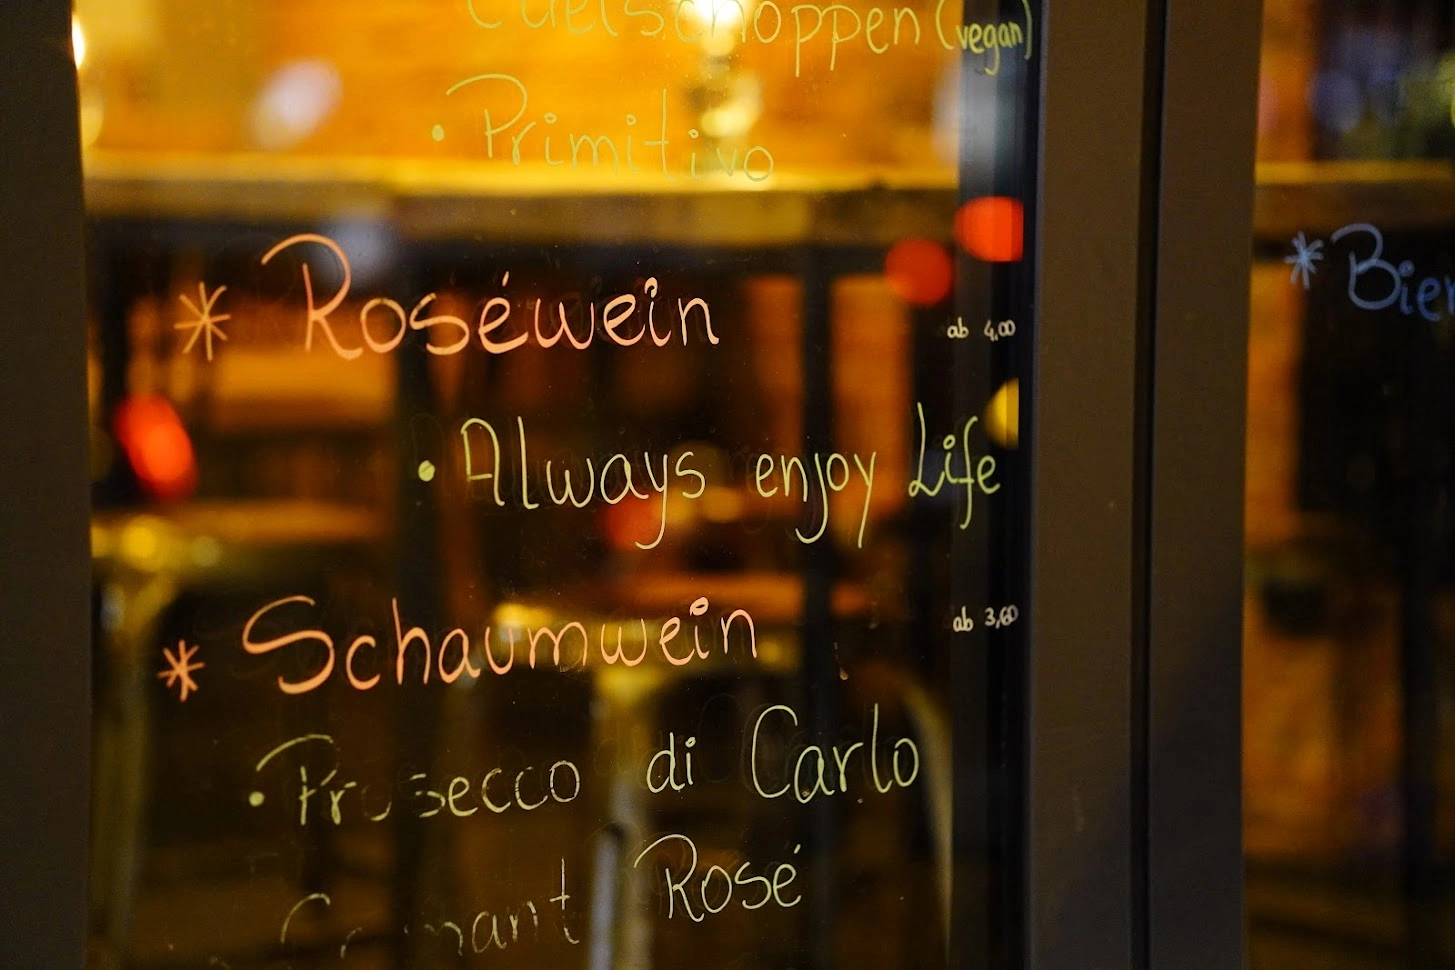 Edelschoppen (vegan)
• Primitivo
* Roséwein ab 4,00
• Always enjoy Life
* Schaumwein ab 3,60
• Prosecco di Carlo
Cremant Rosé
* Bier